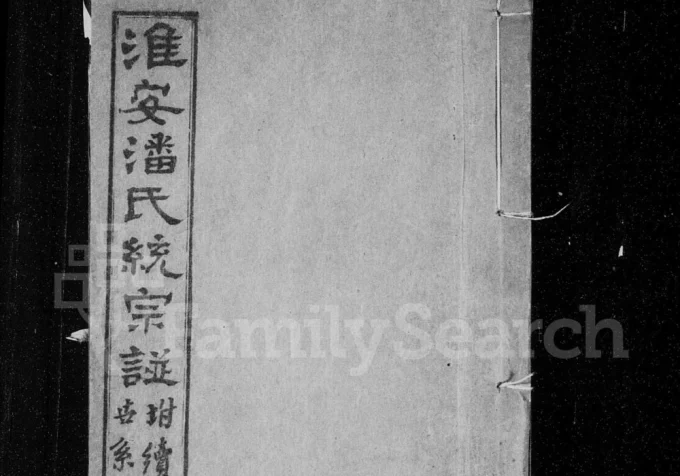 淮安潘氏統宗諩
玵續
世系
FamilySearch